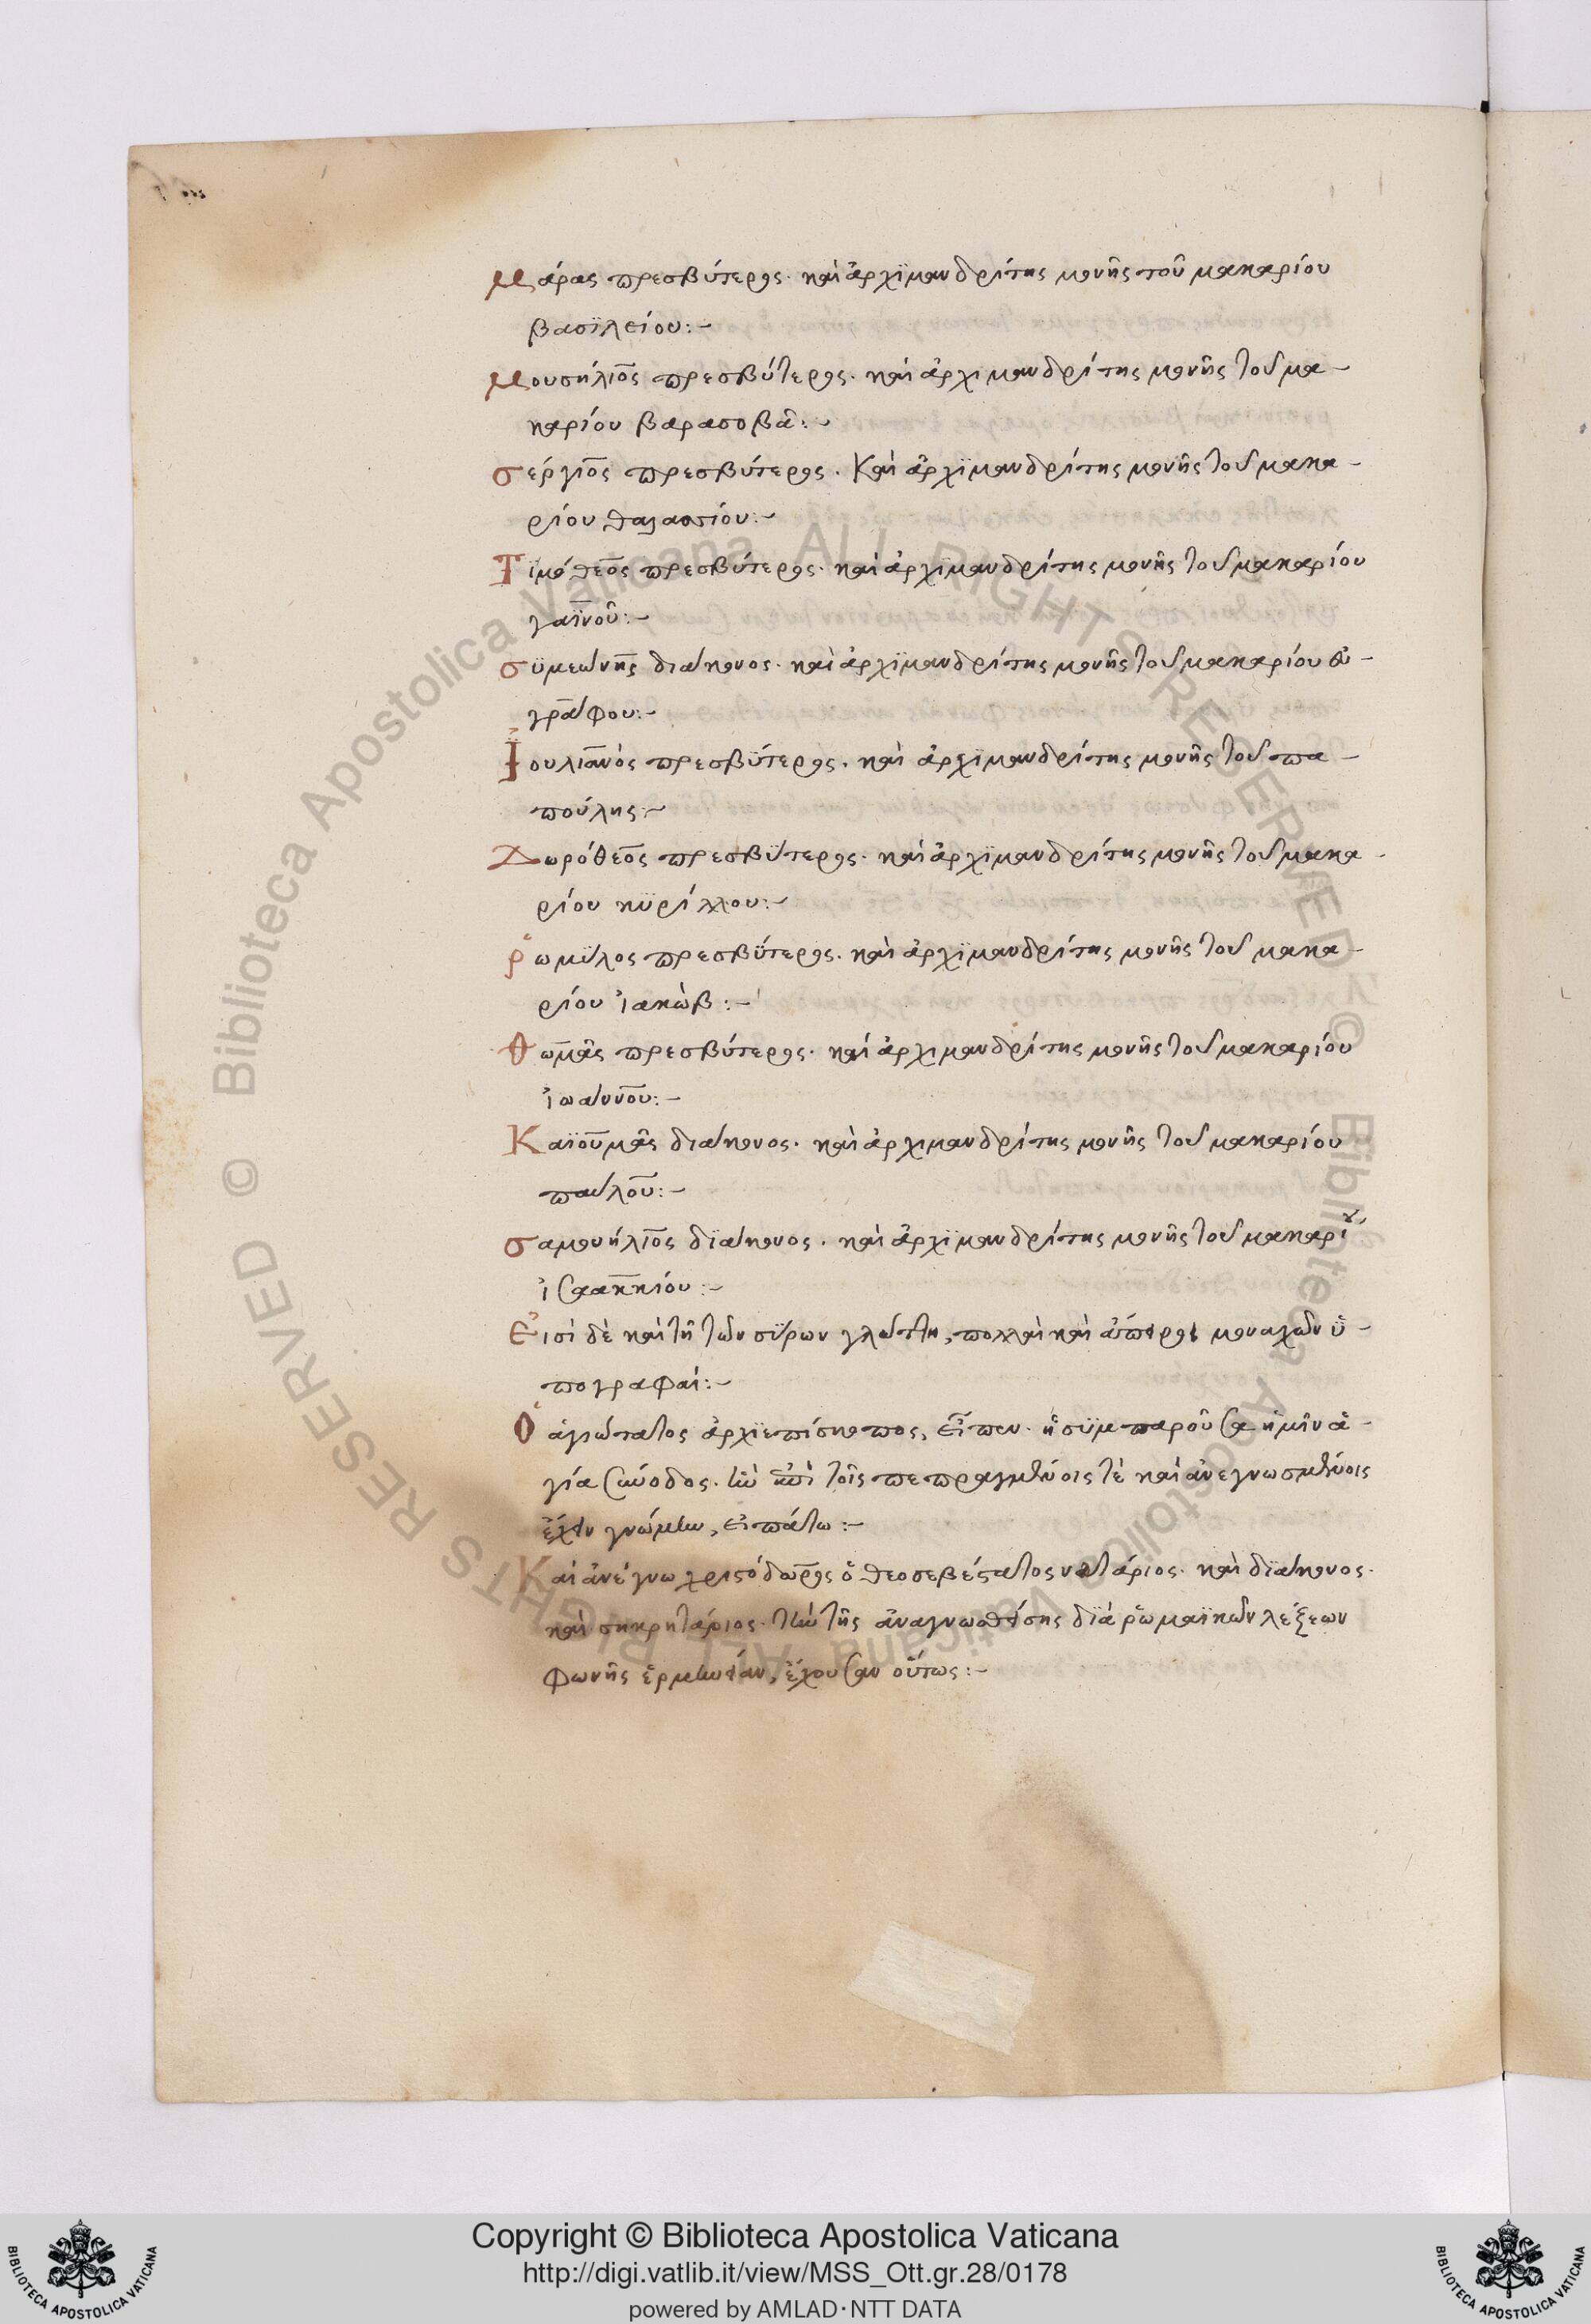 Μάρας πρεσβύτερος. καὶ ἀρχϊμανδρίτης μονῆς τοῦ μακαρίου
βασϊλείου:~
Μουσήλιος πρεσβύτερος. καὶ ἀρχιμανδρίτης μονῆς τοῦ μα-
καρίου βαρασοβᾶ:~
σέργιος πρεσβύτερος. Καὶ ἀρχϊμανδρίτης μονῆς τοῦ μακα-
ρίου θαλασσίου:~
Τϊμόθεος πρεσβύτερος. καὶ ἀρχϊμανδρίτης μονῆς τοῦ μακαρίου
γαϊνοῦ:~
σϋμεώνης διάκονος. καὶ ἀρχϊμανδρίτης μονῆς τοῦ μακαρίου εὐ-
γράφου:~
Ἰουλιανὸς πρεσβύτερος. καὶ ἀρχϊμανδρίτης μονῆς τοῦ πα-
πούλης:~
Δωρόθεος πρεσβύτερος. καὶ ἀρχϊμανδρίτης μονῆς τοῦ μακα-
ρίου κϋρίλλου:~
ῥωμύλος πρεσβύτερος. καὶ ἀρχϊμανδρίτης μονῆς τοῦ μακα-
ρίου ἰακὼβ:~
θωμᾶς πρεσβύτερος. καὶ ἀρχιμανδρίτης μονῆς τοῦ μακαρίου
ἰωάννου:~
Καϊουμᾶς διάκονος. καὶ ἀρχιμανδρίτης μονῆς τοῦ μακαρίου
παύλου:~
σαμουήλιος δϊάκονος. καὶ ἀρχϊμανδρίτης μονῆς τοῦ μακαρίου
ἰσαακίου:~
Εἰσὶ δὲ καὶ τῇ τῶν σύρων γλώττη, πολλαὶ καὶ ἄπειροι μοναχῶν ὑ-
πογραφαί:~
Ὁ ἁγιώτατος ἀρχϊεπίσκοπος, εἶπεν. ἡ σϋμπαροῦσα ἡμῖν ἁ-
γία σύνοδος. ἣν ἐπὶ τοῖς πεπραγμένοις τὲ καὶ ἀνεγνωσμένοις
ἔχει γνώμην, εἰπάτω:~
Καὶ ἀνέγνω χριστόδωρος ὁ θεοσεβέστατος νοτάριος. καὶ δϊάκονος.
καὶ σηκρητάριος. τὴν τῆς ἀναγνωσθείσης δϊὰ ῥωμαϊκῶν λέξεων
φωνῆς ἑρμηνείαν, ἔχουσαν οὕτως:~
Copyright © Biblioteca Apostolica Vaticana
http://digi.vatlib.it/view/MSS_Ott.gr.28/0178
powered by AMLAD·NTT DATA
BIBLIOTECA APOSTOLICA VATICANA
BIBLIOTECA APOSTOLICA VATICANA
© Biblioteca Apostolica Vaticana ALL RIGHTS RESERVED
© Biblioteca Apostolica Vaticana ALL RIGHTS RESERVED